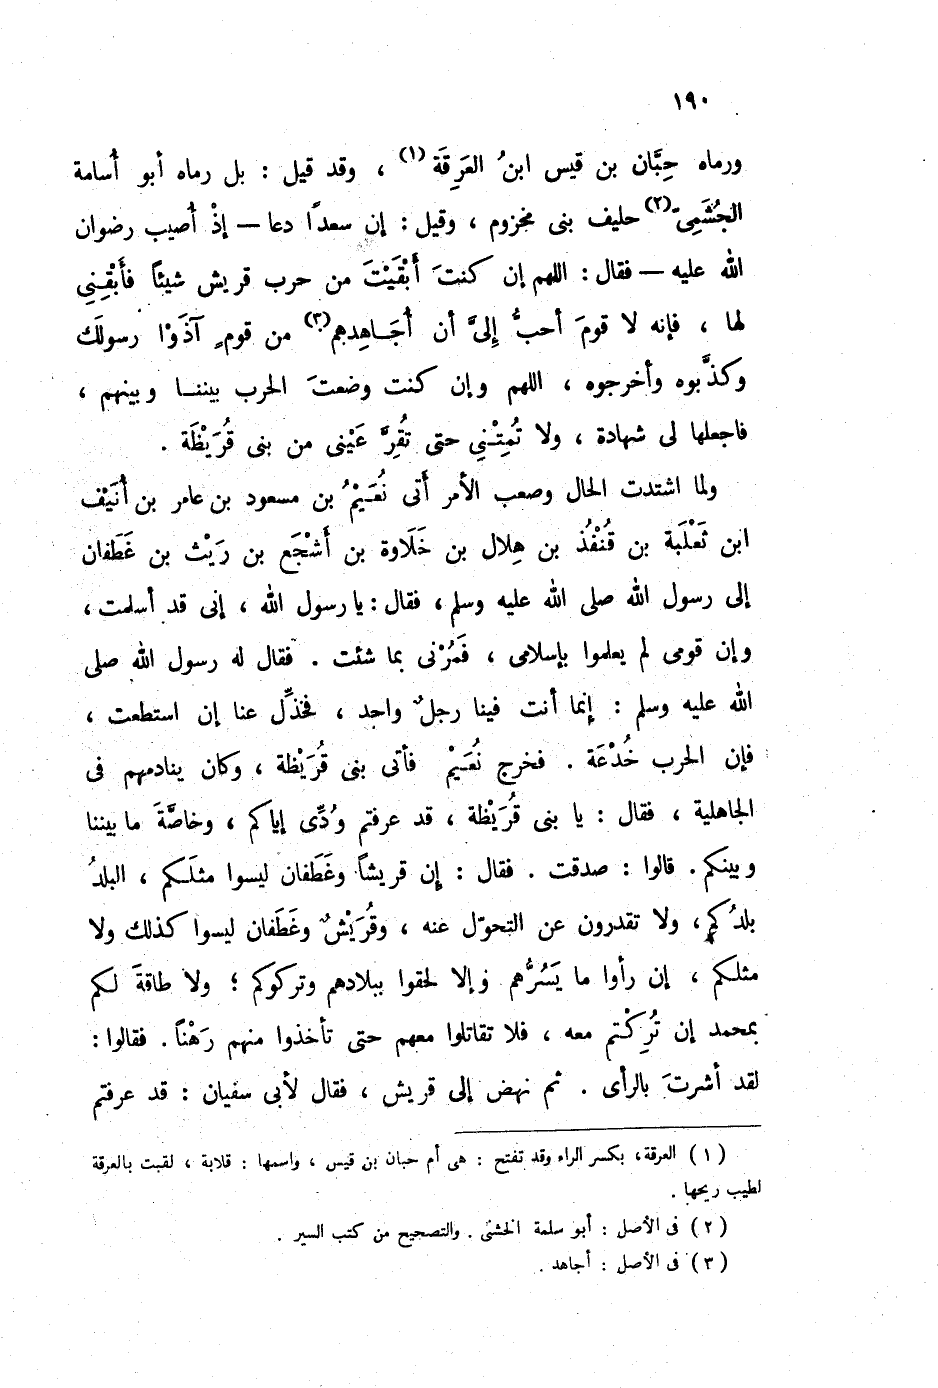 ١٩٠
ورماه حِبَّان بن قيس ابنُ العَرِقَة (١) ، وقد قيل : بل رماه أبو أُسامة
الجُشَمِىّ (٢) حليف بنى مخزوم ، وقيل : إن سعدًا دعا — إذْ أُصيب رضوان
الله عليه — فقال : اللهم إن كنتَ أَبْقَيْتَ من حرب قريش شيئاً فأَبْقِنِى
لها ، فإنه لا قومَ أحبُّ إِلىَّ أن أُجَاهِدهم (٣) من قومٍ آذَوْا رسولَك
وكذَّبوه وأخرجوه ، اللهم وإن كنت وضعتَ الحرب بيننا وبينهم ،
فاجعلها لى شهادة ، ولا تُمِتْنِى حتى تُقِرَّ عَيْنى من بنى قُرَيْظَة .
ولما اشتدت الحال وصعب الأمر أَتى نُعَيْمُ بن مسعود بن عامر بن أُنَيْف
ابن ثَعْلَبة بن قُنْفُذ بن هِلال بن خَلَاوة بن أَشْجَع بن رَيْث بن غَطَفان
إلى رسول الله صلى الله عليه وسلم ، فقال : يا رسول الله ، إنى قد أسلمت ،
وإن قومى لم يعلموا بإسلامى ، فَمُرْنى بما شئت . فقال له رسول الله صلى
الله عليه وسلم : إنما أنت فينا رجلٌ واحد ، فخذِّل عنا إن استطعت ،
فإن الحرب خُدْعَة . فخرج نُعَيْمٌ فأتى بنى قُرَيْظة ، وكان ينادمهم فى
الجاهلية ، فقال : يا بنى قُرَيْظة ، قد عرفتم وُدِّى إياكم ، وخاصَّةَ ما بيننا
وبينكم . قالوا : صدقت . فقال : إن قريشاً وغَطَفان ليسوا مثلَكم ، البلدُ
بلدُكم ، ولا تقدرون عن التحوّل عنه ، وقُرَيْشٌ وغَطَفان ليسوا كذلك ولا
مثلكم ، إن رأوا ما يَسُرُّهم وإلا لحقوا ببلادهم وتركوكم ؛ ولا طاقةَ لكم
بمحمد إن تُرِكْتم معه ، فلا تقاتلوا معهم حتى تأخذوا منهم رَهْناً . فقالوا :
لقد أشرتَ بالرأى . ثم نهض إلى قريش ، فقال لأبى سفيان : قد عرفتم
(١) العرقة ، بكسر الراء وقد تفتح : هى أم حبان بن قيس ، واسمها : قلابة ، لقبت بالعرقة
لطيب ريحها .
(٢) فى الأصل : أبو سلمة الخشنى . والتصحيح من كتب السير .
(٣) فى الأصل : أجاهد .